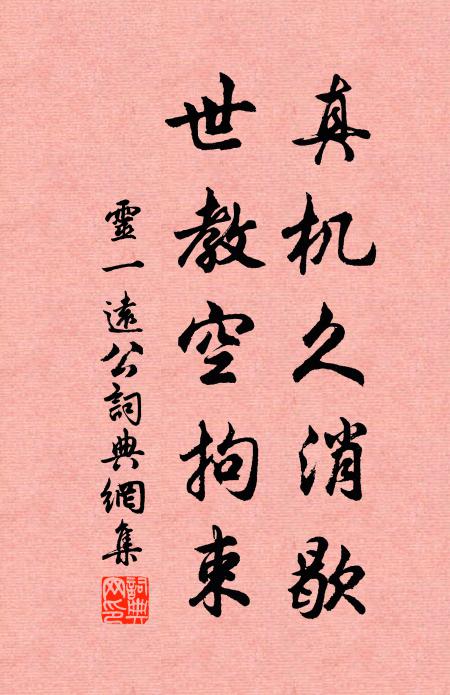 真机久消歇
世教空拘束
靈一遠公詞典網集
詞典
网印